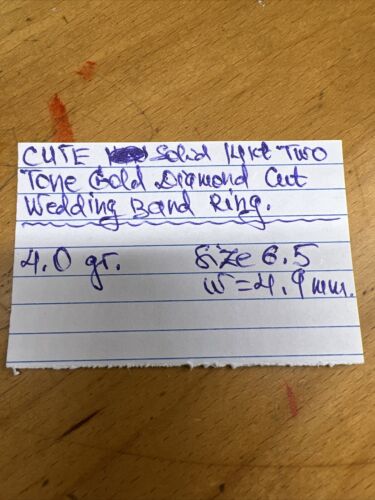 CUTE Solid 14kt Two
Tone Gold Diamond Cut
Wedding Band Ring.
4.0 gr. Size 6.5
W=4.9mm.